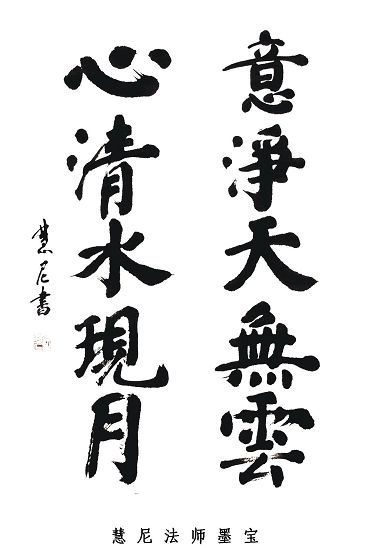 意淨天無雲
心清水現月
慧尼書
慧尼法师墨宝